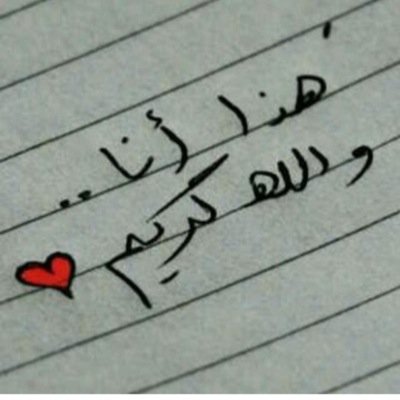 هذا أنا..
والله كريم